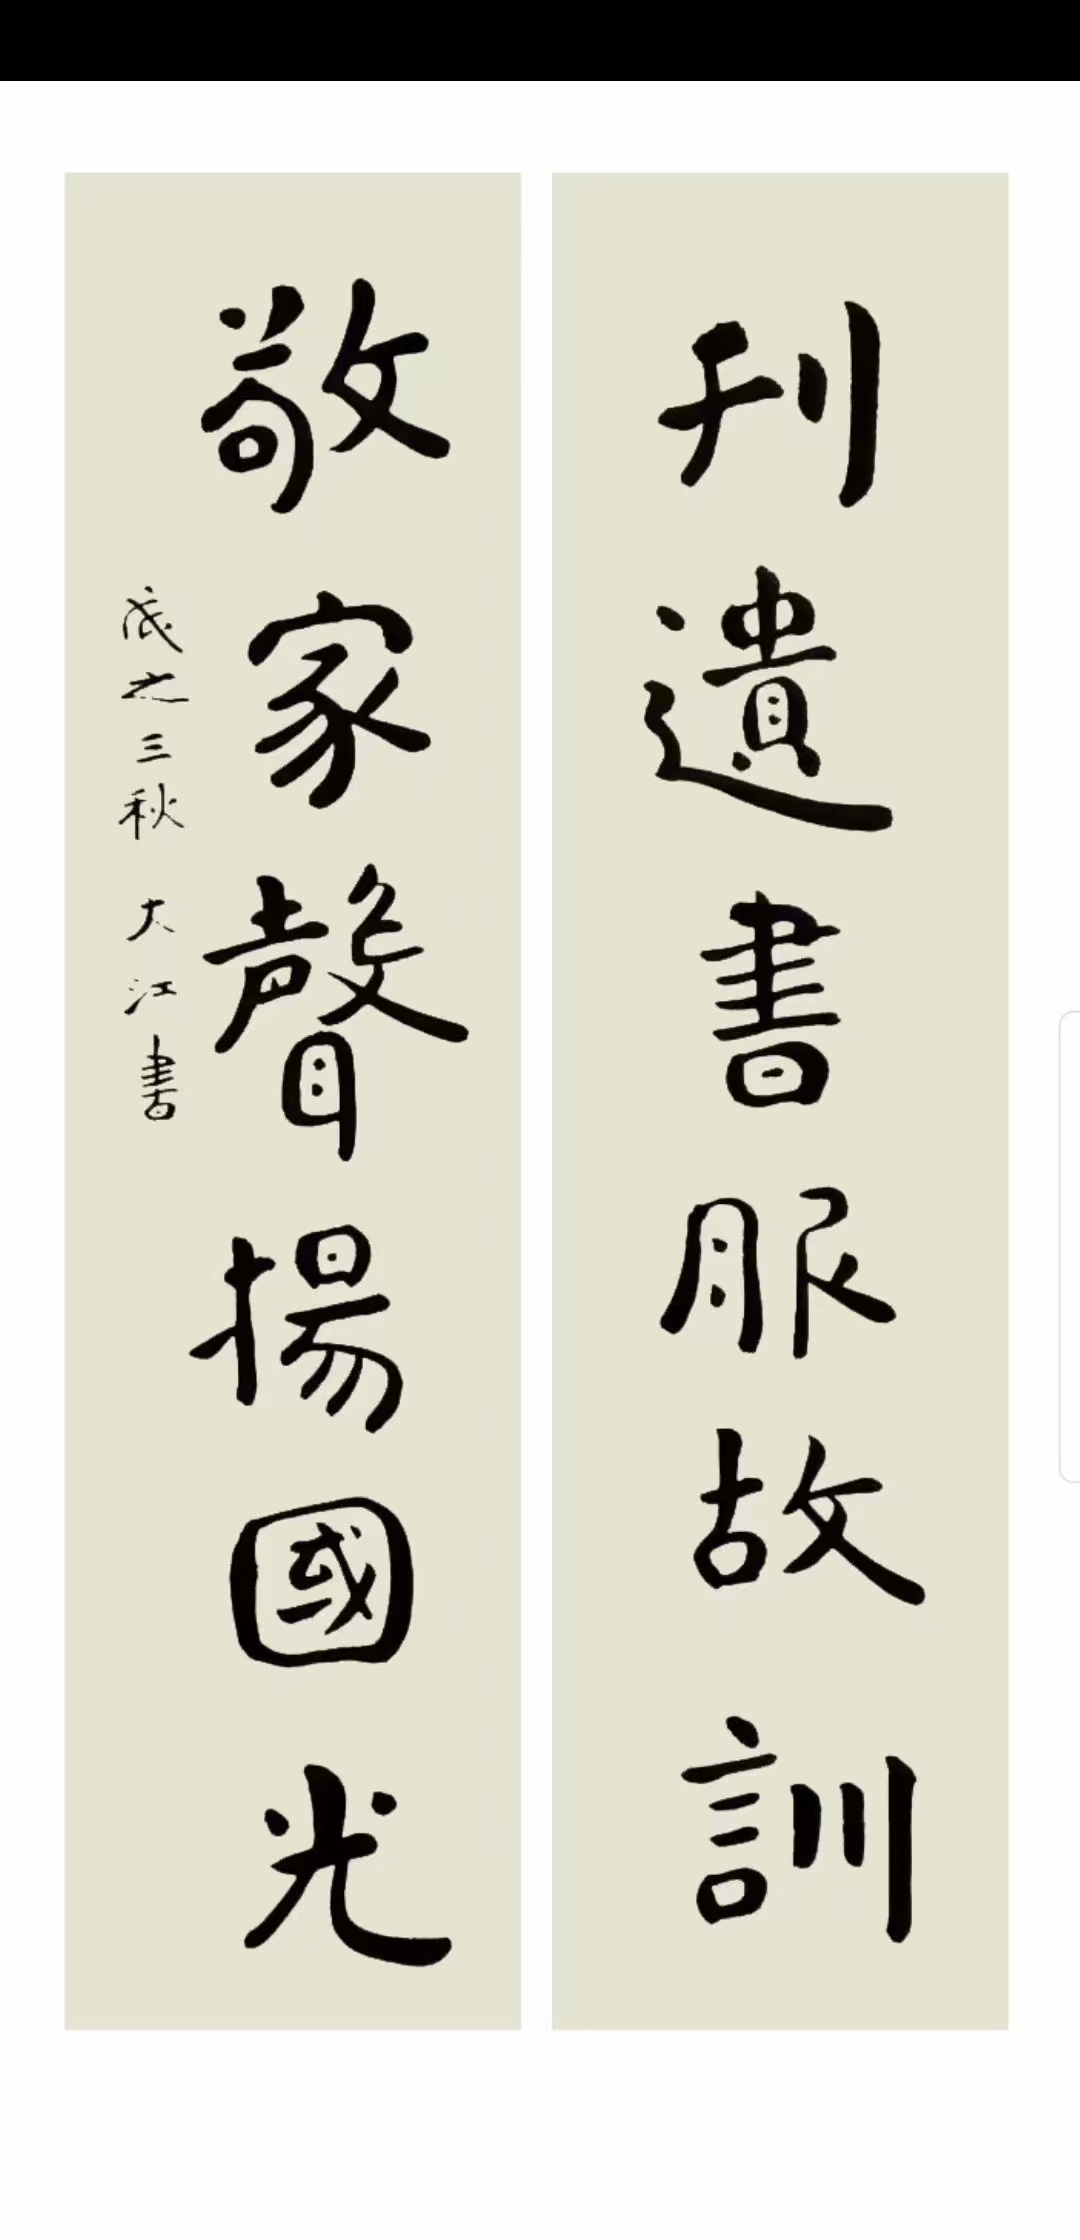 刊遺書服故訓
敬家聲揚國光
之三秋 大江書